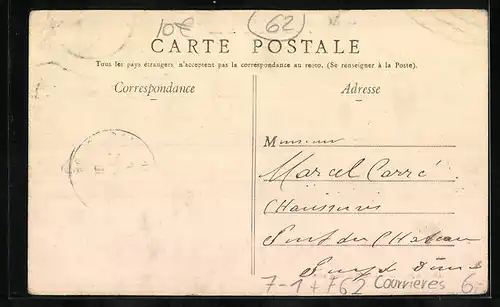 10€ 62
CARTE POSTALE
Tous les pays étrangers n'acceptent pas la correspondance au recto. (Se renseigner à la Poste).
Correspondance Adresse
Monsieur
Marcel Carré
Chaussures
Pont du Château
7-1 + 762 Courrières 6-